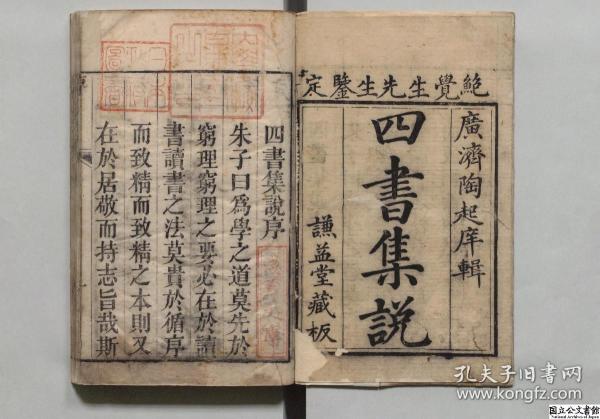 鮑覺生先生鑒定
廣濟陶起庠輯
四書集說
謙益堂藏板
四書集說序
朱子曰爲學之道莫先於
窮理窮理之要必在於讀
書讀書之法莫貴於循序
而致精而致精之本則又
在於居敬而持志旨哉斯
孔夫子旧书网
www.kongfz.com
国立公文書館
National Archives of Japan